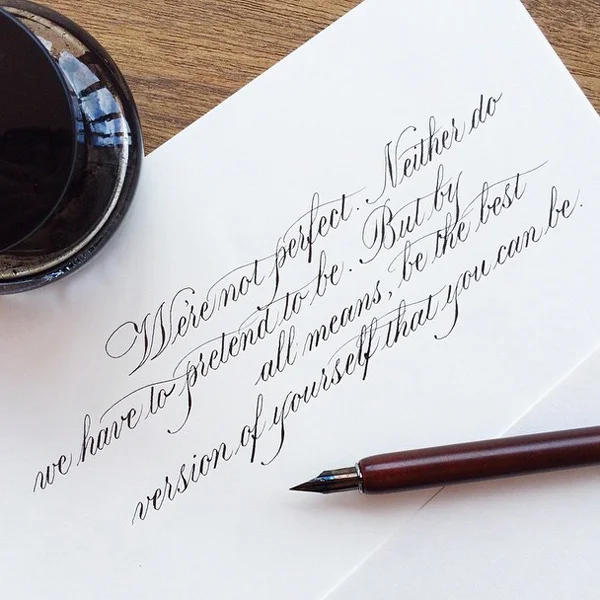 We're not perfect. Neither do
we have to pretend to be. But by
all means, be the best
version of yourself that you can be.